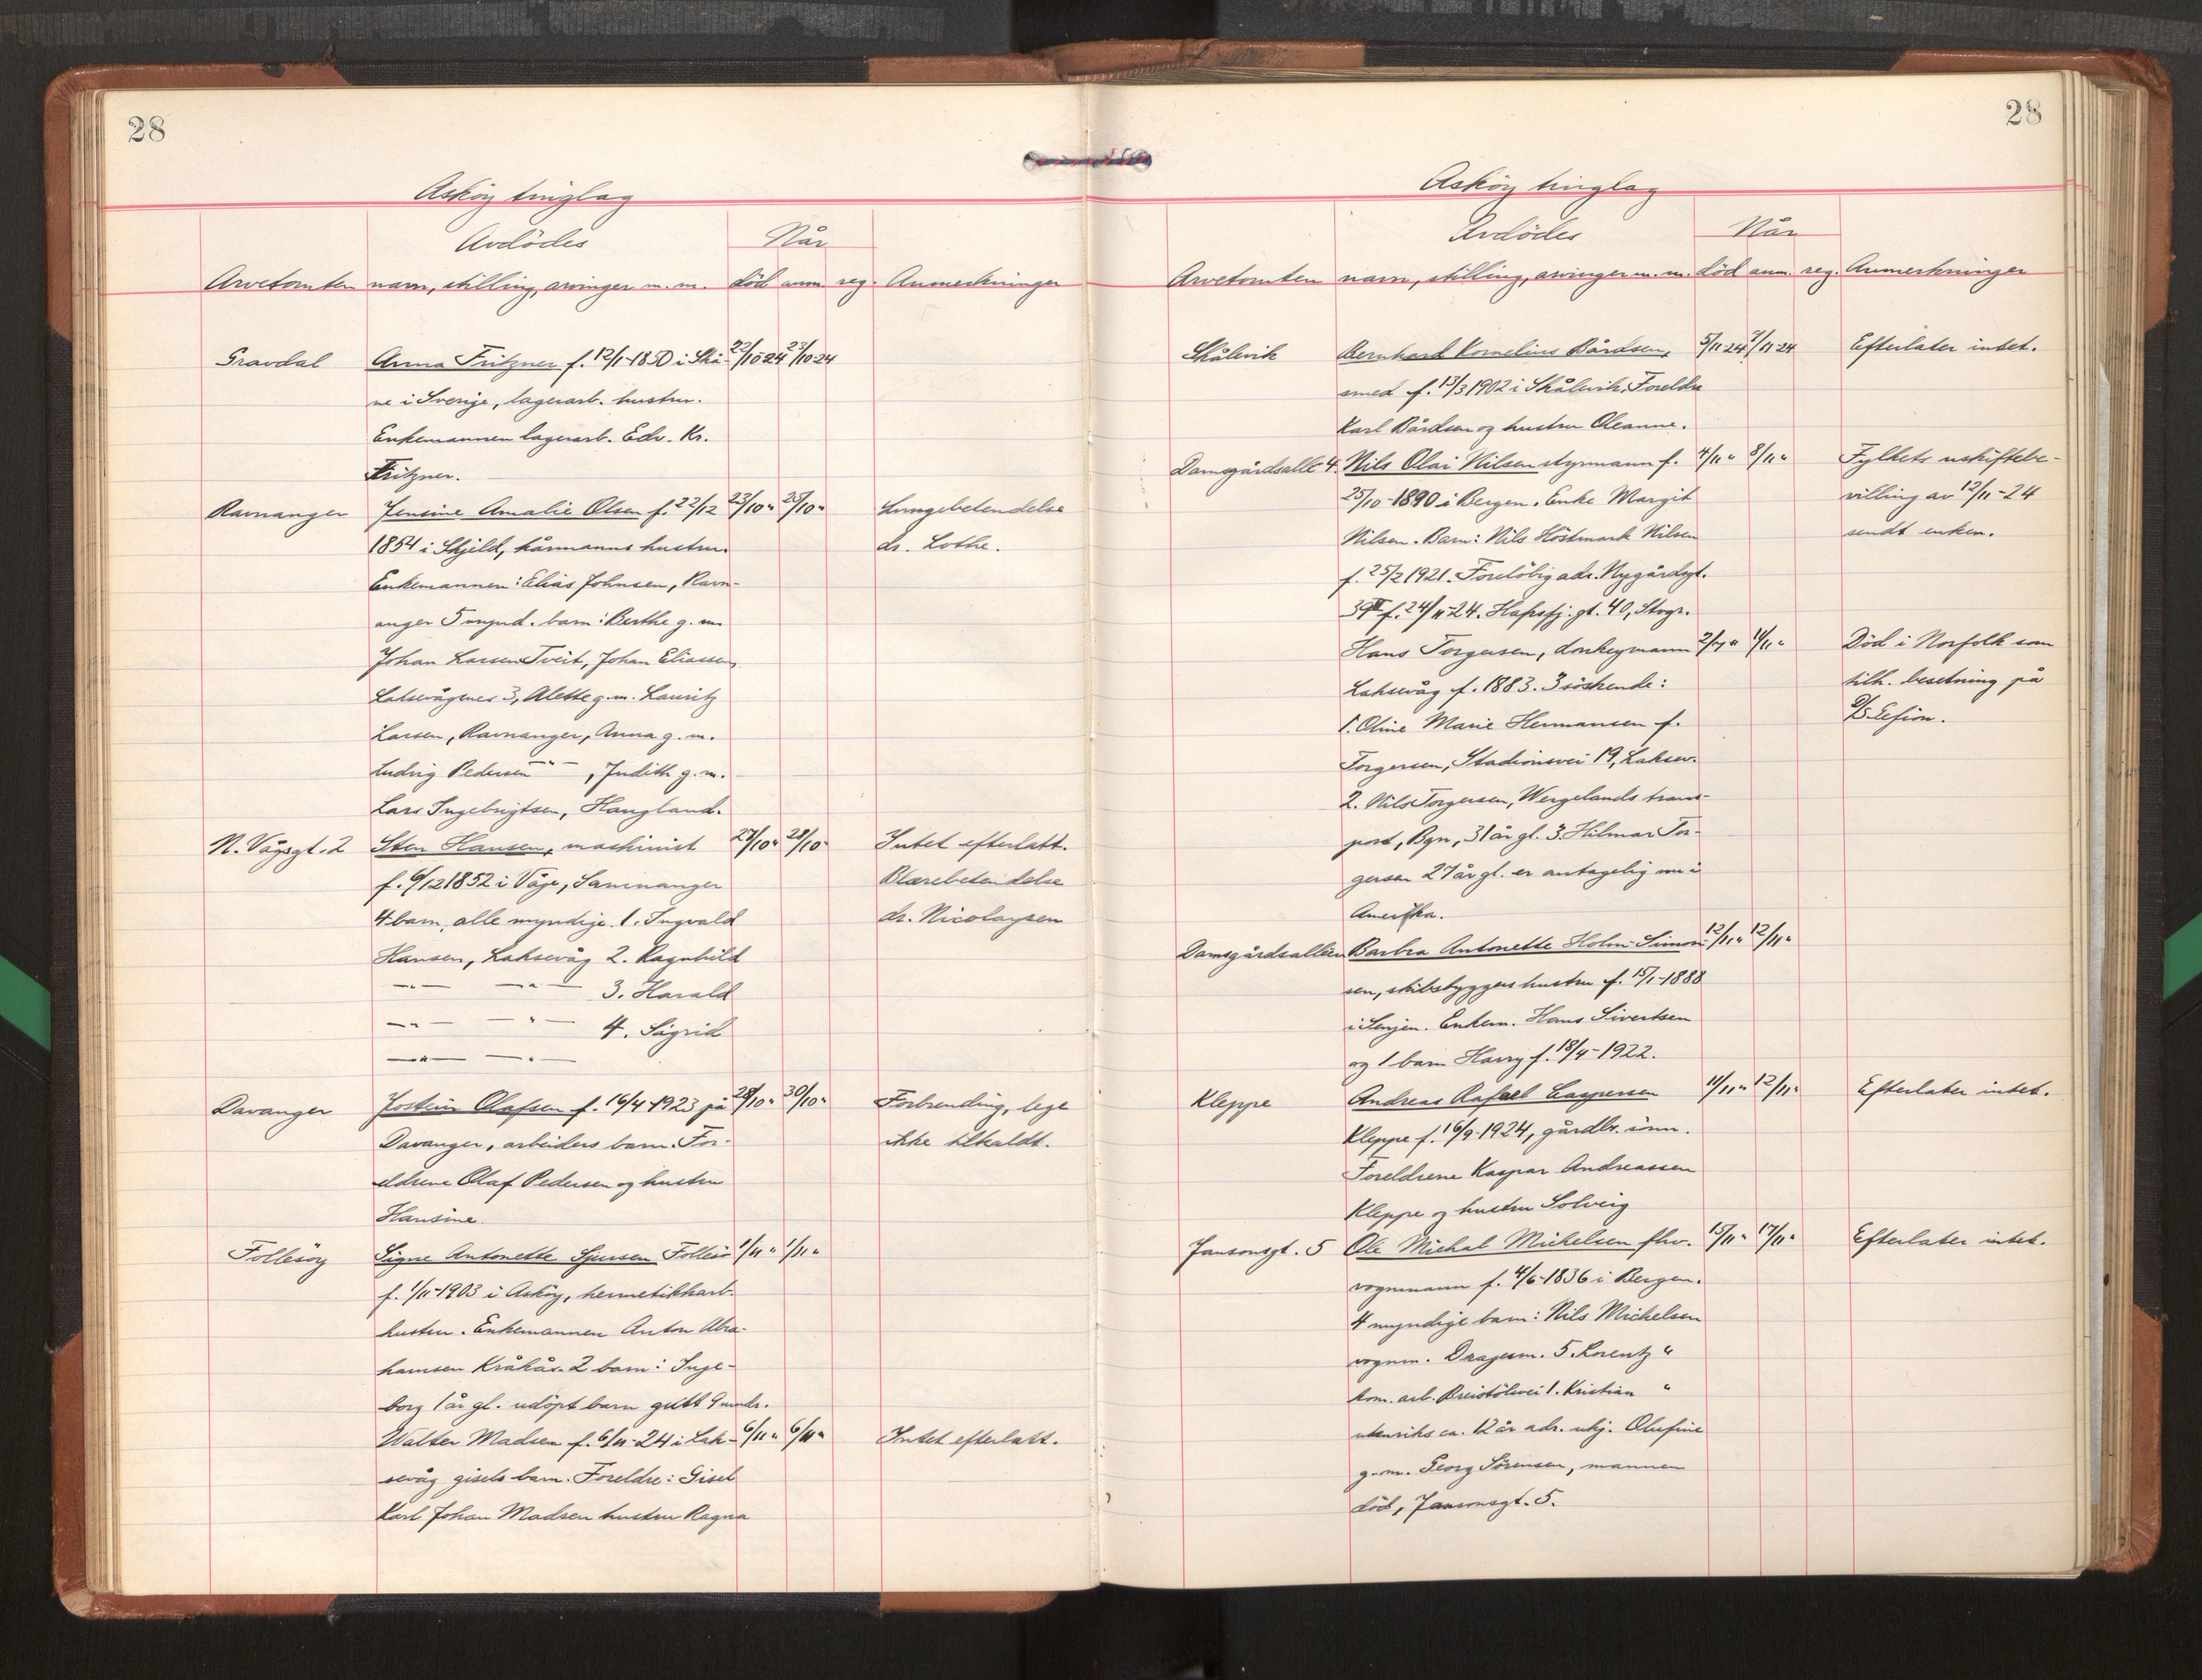 28
Askøy tinglag
Avdödes
Når
Arvetomten navn, stilling, arvinger m. m. död anm. reg. Anmerkninger
Gravdal Anna Fritzner f. 12/1-1850 i Skå- 22/10-24 23/10-24
ne i Sverige, lagerarb. hustru.
Enkemannen lagerarb. Edv. Kr.
Fritzner.
Ravnanger Jensine Amalie Olsen f. 22/12 23/10 " 25/10 " Lungebetendelse
1854 i Skjeld, kårmanns hustru. dr. Lothe.
Enkemannen: Elias Johnsen, Ravn-
anger 5 mynd. barn: Berthe g. m.
Johan Larsen Tveit, Johan Eliassen,
Laksevågsnes 3, Alette g. m. Lauritz
Larsen, Ravnanger, Anna g. m.
Ludvig Pedersen — " — , Judith g. m.
Lars Ingebrigtsen, Haugland.
N. Vågsgt. 2 Sten Hansen, maskinist 27/10 " 28/10 " Intet efterlatt.
f. 6/12 1852 i Våge, Samnanger Blærebetendelse
4 barn, alle myndige. 1. Ingvald dr. Nicolaysen
Hansen, Laksevåg 2. Ragnhild
— " — — " — 3. Harald
— " — — " — 4. Sigrid
— " — — " —
Davanger Jostein Olafsen f. 16/4-1923 på 28/10 " 30/10 " Forbrending, lege
Davanger, arbeiders barn. For- ikke tilkaldt.
eldrene Olaf Pedersen og hustru
Hansine.
Follesöy Signe Antonette Sjursen Follesö 1/11 " 1/11 "
f. 1/11-1903 i Asköy, hermetikkarb.
hustru. Enkemannen Anton Abra-
hamsen Kråkås. 2 barn: Inge-
borg 1 år gl. udöpt barn gutt
Walter Madsen f. 6/11-24 i Lak- 6/11 " 6/11 " Intet efterlatt.
sevåg gisels barn. Foreldre: Gisel
Karl Johan Madsen hustru Ragna
28
Askøy tinglag
Avdödes
Når
Arvetomten navn, stilling, arvinger m. m. död anm. reg. Anmerkninger
Skålevik Bernhard Kornelius Bårdsen, 5/11-24 7/11-24 Efterlater intet.
smed f. 13/3 1902 i Skålevik. Foreldre
Karl Bårdsen og hustru Oleanne.
Damsgårdsalle 4. Nils Olai Nilsen styrmann f. 4/11 " 8/11 " Fylkets uskiftebe-
25/10-1890 i Bergen. Enke Margit villing av 12/11-24
Nilsen. Barn: Nils Höstmark Nilsen sendt enken.
f. 25/2 1921. Forelöbig adr. Nygårdsgt.
39 II f. 24/11-24. Hafrsfj. gt. 40, Stvgr.
Hans Torgersen, donkeymann 2/7 " 11/11 " Död i Norfolk som
Laksevåg f. 1883. 3 söskende: tilh. besetning på
1. Oline Marie Hermansen f. D/S Gefion.
Torgersen, Stadionsvei 19, Laksev.
2. Nils Torgersen, Wergelands trans-
port, Bgn, 31 år gl. 3. Hilmar Tor-
gersen 27 år gl. er antagelig nu i
Amerika.
Damsgårdsalleen Barbra Antonette Holm-Simon- 12/11 " 12/11 "
sen, skibsbyggers hustru f. 15/1-1888
i Senjen. Enkem. Hans Sivertsen
og 1 barn Harry f. 18/4-1922.
Kleppe Andreas Rafael Caspersen 11/11 " 12/11 " Efterlater intet.
Kleppe f. 16/9-1924, gårdbr. sönn.
Foreldrene Kaspar Andreassen
Kleppe og hustru Solveig
Jansonsgt. 5 Ole Michal Michelsen fhv. 15/11 " 17/11 " Efterlater intet.
vognmann f. 4/6-1836 i Bergen.
4 myndige barn: Nils Michelsen
vognm. Dragesm. 5. Lorentz "
kom. arb. Breistölsvei 1. Kristian "
utenriks ca. 12 år adr. ukj. Olufine
g. m. Georg Sörensen, mannen
död, Jansonsgt. 5.